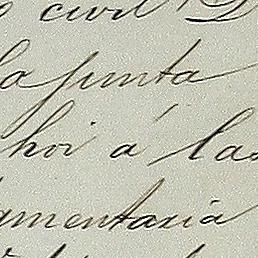 civil
la junta
hoi á las
amentaria